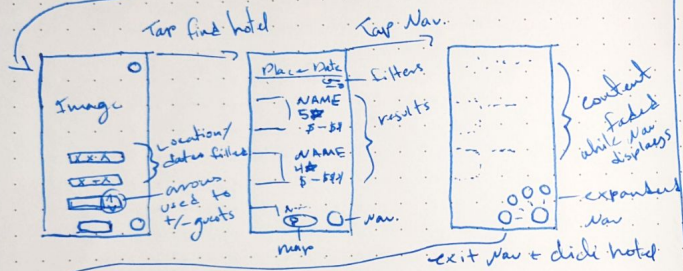 Tap find hotel
Tap Nav.
Image
Location/
dates filled
arrows
used to
+/- guests
Place - Date
filters
NAME
5★
$-$$
NAME
4★
$-$$$
N...
results
Nav.
map
content
faded
while Nav
displays
expanded
Nav
exit Nav + click hotel